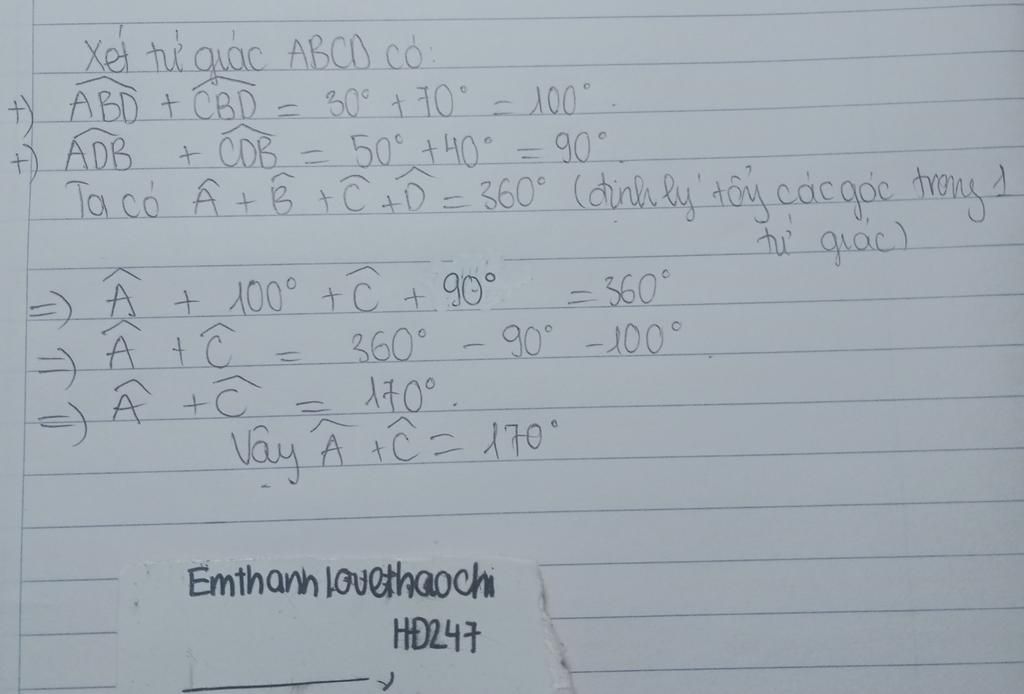 Xét tứ giác ABCD có:
+) ABD̂ + CBD̂ = 30° + 70° = 100°.
+) ADB̂ + CDB̂ = 50° + 40° = 90°
Ta có Â + B̂ + Ĉ + D̂ = 360° (định lý tổng các góc trong 1
tứ giác)
=> Â + 100° + Ĉ + 90° = 360°
=> Â + Ĉ = 360° - 90° - 100°
=> Â + Ĉ = 170°.
Vậy Â + Ĉ = 170°
Emthanhlovethaochi
HĐ247